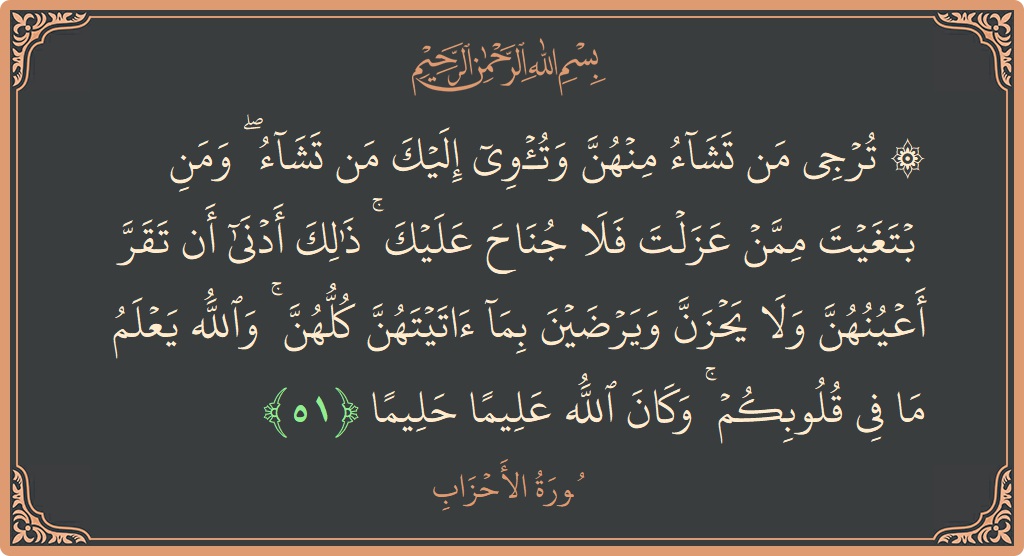 بِسْمِ اللهِ الرَّحْمٰنِ الرَّحِيْمِ
۞ تُرْجِى مَن تَشَآءُ مِنْهُنَّ وَتُـْٔوِىٓ إِلَيْكَ مَن تَشَآءُ ۖ وَمَنِ
بْتَغَيْتَ مِمَّنْ عَزَلْتَ فَلَا جُنَاحَ عَلَيْكَ ۚ ذَٰلِكَ أَدْنَىٰٓ أَن تَقَرَّ
أَعْيُنُهُنَّ وَلَا يَحْزَنَّ وَيَرْضَيْنَ بِمَآ ءَاتَيْتَهُنَّ كُلُّهُنَّ ۚ وَٱللَّهُ يَعْلَمُ
مَا فِى قُلُوبِكُمْ ۚ وَكَانَ ٱللَّهُ عَلِيمًا حَلِيمًا ﴿٥١﴾
سُورَةُ الأَحْزَابِ